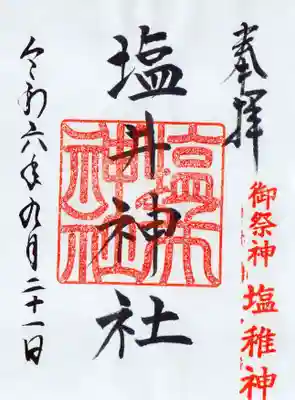 奉拝
御祭神 塩稚神
塩井神社
塩井神社
令和六年九月二十一日